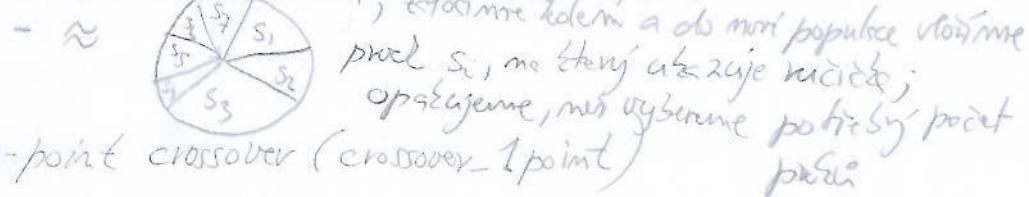 - ≈ S₁ S₂ S₃ S₅ S₇ ; zatočíme kolem a do nové populace vložíme
prvek sᵢ, na který ukazuje ručička;
opakujeme, než vybereme potřebný počet
prvků
-point crossover (crossover_1point)